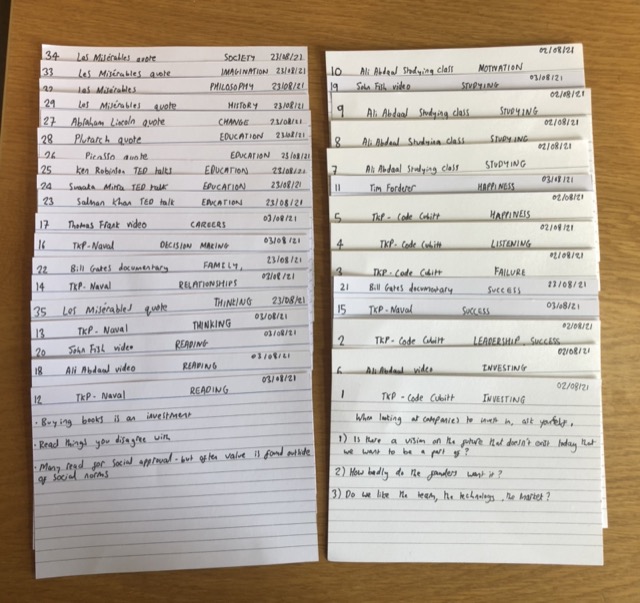 34 Les Misérables quote SOCIETY 23/08/21
33 Les Misérables quote IMAGINATION 23/08/21
32 Les Misérables PHILOSOPHY 23/08/21
29 Les Misérables quote HISTORY 23/08/21
27 Abraham Lincoln quote CHANGE 23/08/21
28 Plutarch quote EDUCATION 23/08/21
26 Picasso quote EDUCATION 23/08/21
25 Ken Robinson TED talks EDUCATION 23/08/21
24 Sugata Mitra TED talk EDUCATION 23/08/21
23 Salman Khan TED talk EDUCATION 23/08/21
17 Thomas Frank video CAREERS 03/08/21
16 TKP-Naval DECISION MAKING 03/08/21
22 Bill Gates documentary FAMILY, 23/08/21
14 TKP-Naval RELATIONSHIPS 03/08/21
35 Les Misérables quote THINKING 23/08/21
13 TKP-Naval THINKING 03/08/21
20 John Fish video READING 03/08/21
18 Ali Abdaal video READING 03/08/21
12 TKP-Naval READING 03/08/21
· Buying books is an investment
· Read things you disagree with
· Many read for social approval - but often value is found outside
of social norms
02/08/21
10 Ali Abdaal Studying class MOTIVATION
03/08/21
19 John Fish video STUDYING
02/08/21
9 Ali Abdaal Studying class STUDYING
02/08/21
8 Ali Abdaal Studying class STUDYING
02/08/21
7 Ali Abdaal Studying class STUDYING
03/08/21
11 Tim Forderer HAPPINESS
02/08/21
5 TKP- Code Cubitt HAPPINESS
02/08/21
4 TKP- Code Cubitt LISTENING
02/08/21
3 TKP- Code Cubitt FAILURE
21 Bill Gates documentary SUCCESS 23/08/21
15 TKP-Naval SUCCESS 03/08/21
02/08/21
2 TKP- Code Cubitt LEADERSHIP, SUCCESS
02/08/21
6 Ali Abdaal video INVESTING
02/08/21
1 TKP- Code Cubitt INVESTING
When looking at companies to invest in, ask yourself,
1) Is there a vision on the future that doesn't exist today that
we want to be a part of?
2) How badly do the founders want it?
3) Do we like the team, the technology, the market?